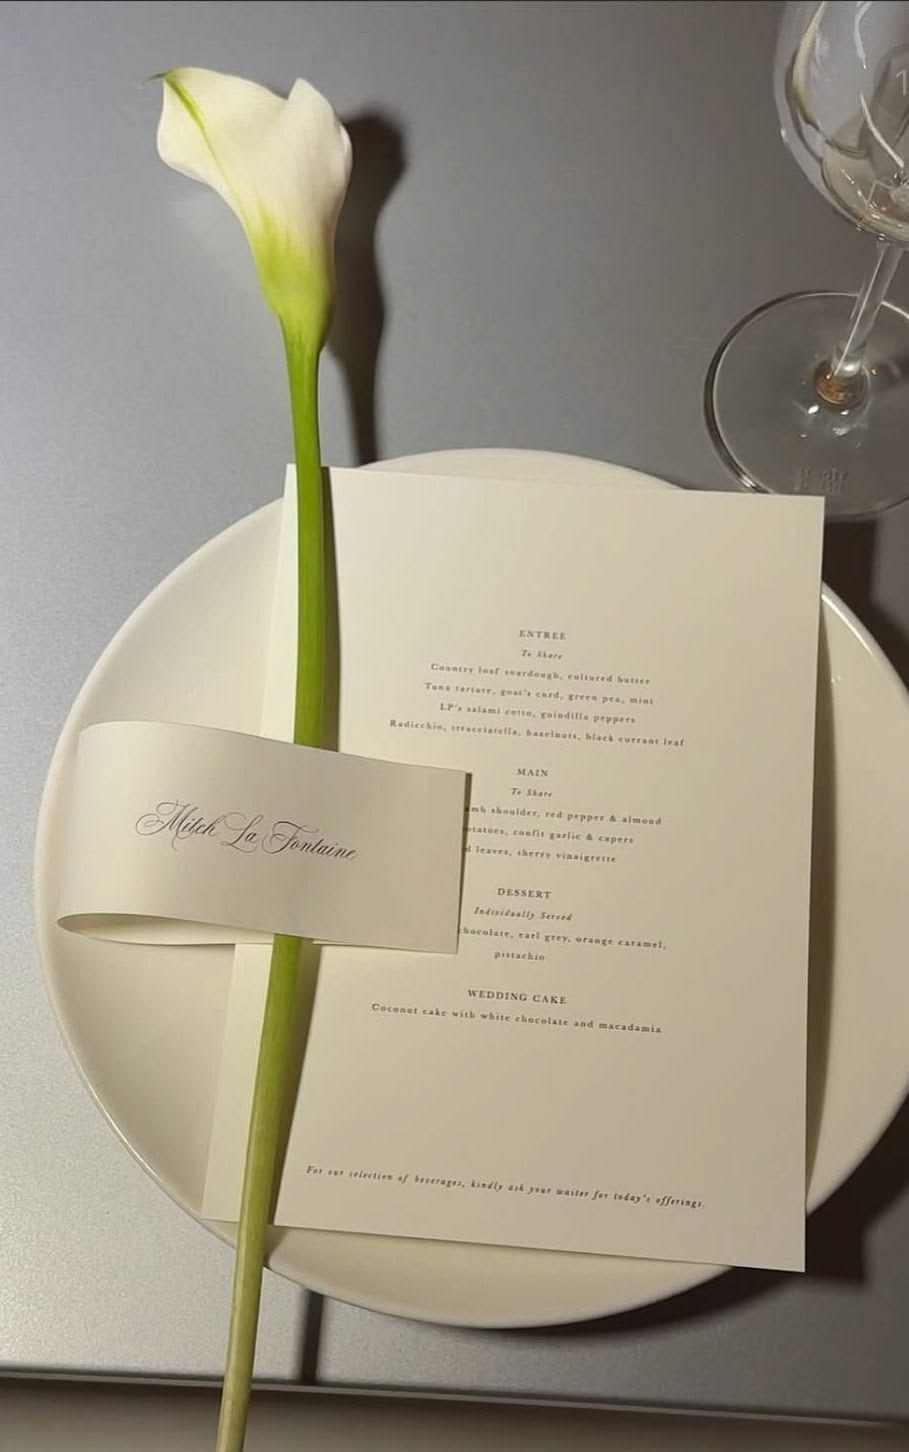 ENTREE
To Share
Country loaf sourdough, cultured butter
Tuna tartare, goat's curd, green pea, mint
LP's salami cotto, guindilla peppers
Radicchio, stracciatella, hazelnuts, black currant leaf
MAIN
To Share
shoulder, red pepper & almond
confit garlic & capers
leaves, sherry vinaigrette
Mitch La Fontaine
DESSERT
Individually Served
earl grey, orange caramel,
pistachio
WEDDING CAKE
Coconut cake with white chocolate and macadamia
For our selection of beverages, kindly ask your waiter for today's offerings.